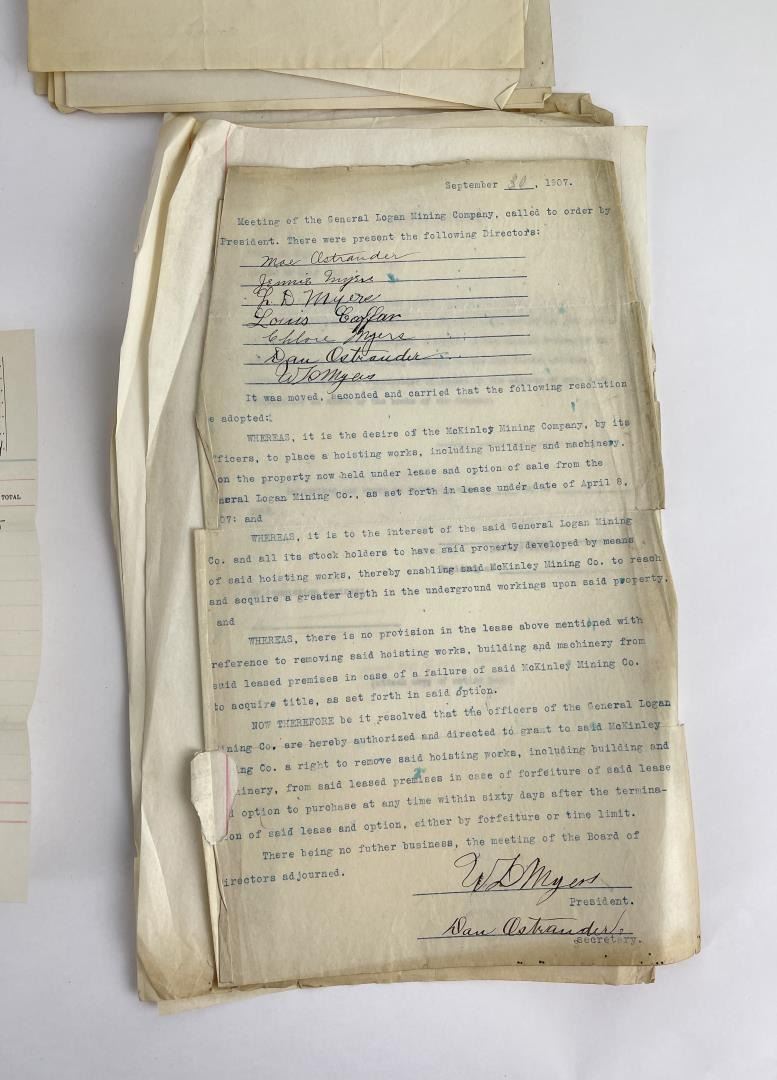 September 30, 1907.
Meeting of the General Logan Mining Company, called to order by
President. There were present the following Directors:
Mae Ostrander
Jennie Myers
L D Myers
Louis
Chloie Myers
Dan Ostrander
W D Myers
It was moved, seconded and carried that the following resolution
e adopted:
WHEREAS, it is the desire of the McKinley Mining Company, by its
fficers, to place a hoisting works, including building and machinery.
on the property now held under lease and option of sale from the
neral Logan Mining Co., as set forth in lease under date of April 8,
07: and
WHEREAS, it is to the interest of the said General Logan Mining
Co. and all its stock holders to have said property developed by means
of said hoisting works, thereby enabling said McKinley Mining Co. to reach
and acquire a greater depth in the underground workings upon said property.
and
WHEREAS, there is no provision in the lease above mentioned with
reference to removing said hoisting works, building and machinery from
said leased premises in case of a failure of said McKinley Mining Co.
to acquire title, as set forth in said option.
NOW THEREFORE be it resolved that the officers of the General Logan
ining Co. are hereby authorized and directed to grant to said McKinley
ing Co. a right to remove said hoisting works, including building and
inery, from said leased premises in case of forfeiture of said lease
d option to purchase at any time within sixty days after the termina-
ion of said lease and option, either by forfeiture or time limit.
There being no futher business, the meeting of the Board of
irectors adjourned.
W D Myers
President.
Dan Ostrander
secretary.
TOTAL